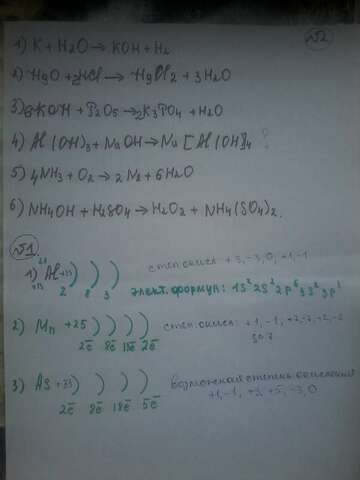 №2.
1) K + H2O → KOH + H2
2) HgO + 2HCl → HgCl2 + 3H2O
3) 6KOH + P2O5 → 2K3PO4 + H2O
4) Al(OH)3 + NaOH → Na[Al(OH]4 ?
5) 4NH3 + O2 → 2N2 + 6H2O
6) NH4OH + H2SO4 → H2O2 + NH4(SO4)2.
№1.
1) Al +13 ) ) ) степ. окисл +3, -3, 0, +1, -1
2 8 3 элект. формул: 1S² 2S² 2p⁶ 3S² 3p¹
2) Mn +25 ) ) ) ) степ. окисл:
2ē 8ē 13ē 2ē
3) As +33 ) ) ) ) возможная степень окисления
2ē 8ē 18ē 5ē +1, -1, +3, +5, -3, 0